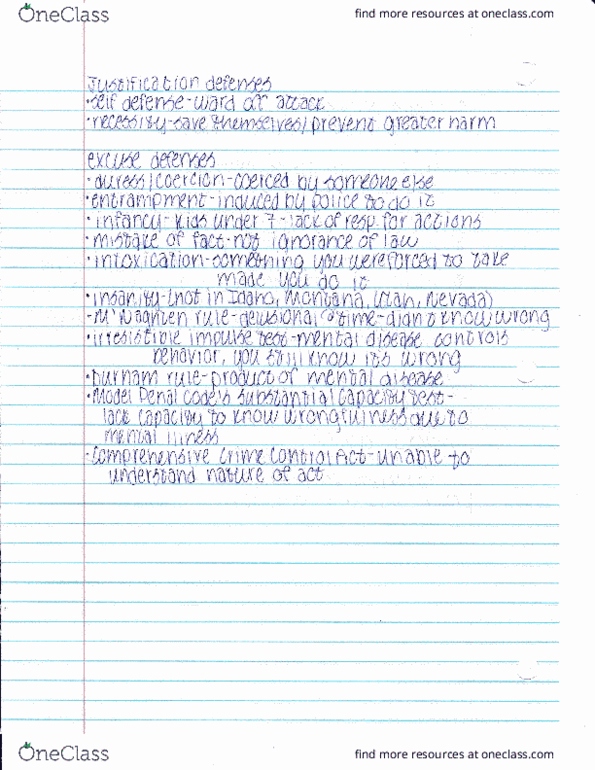 OneClass
find more resources at oneclass.com
Justification defenses
·self defense-ward off attack
·necessity-save themselves/prevent greater harm
excuse defenses
·duress/coercion-coerced by someone else
·entrapment-induced by police to do it
·infancy-kids under 7-lack of resp. for actions
·mistake of fact-not ignorance of law
·intoxication-something you were forced to take
made you do it
·insanity-(not in Idaho, Montana, Utah, Nevada)
-M'Naghten rule-delusional @ time-didn't know wrong
·irresistible impulse test-mental disease controls
behavior, you still know its wrong
·Durham rule-product of mental disease
·Model Penal code's substantial capacity test-
lack capacity to know wrongfulness due to
mental illness
·Comprehensive Crime Control Act-unable to
understand nature of act
OneClass
find more resources at oneclass.com